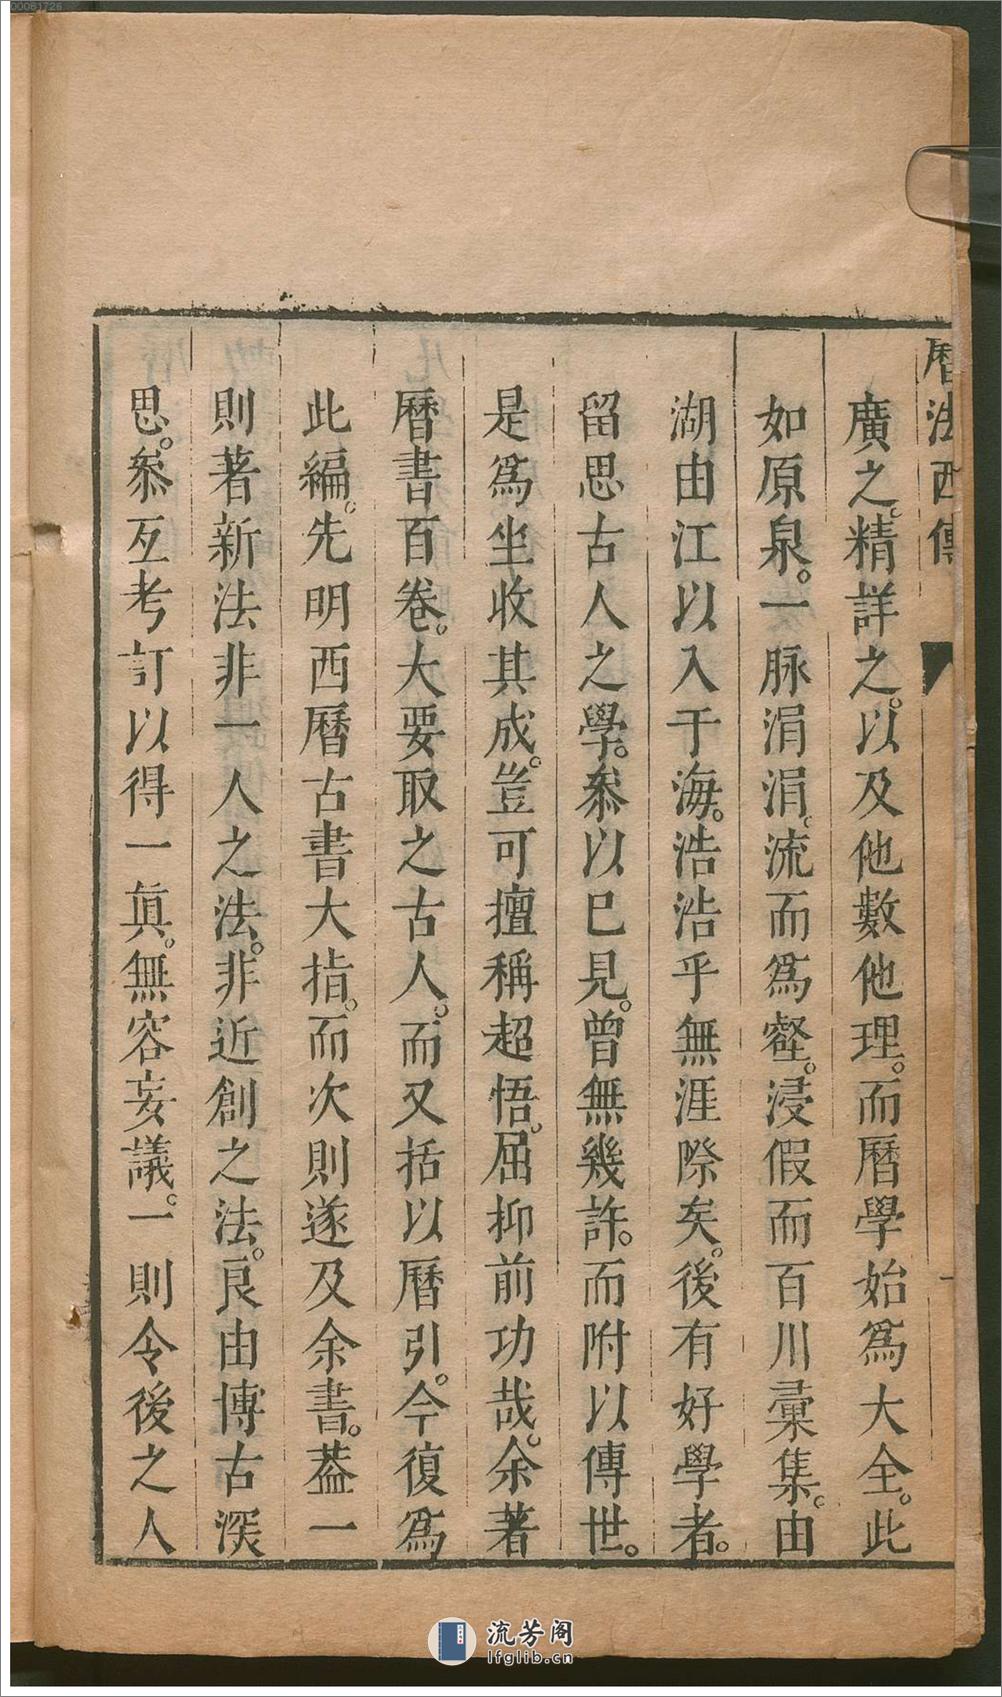 00061726
曆法西傳
廣之。精詳之。以及他數他理。而曆學始爲大全。此
如原泉。一脉涓涓。流而爲壑。浸假而百川彚集。由
湖由江以入于海。浩浩乎無涯際矣。後有好學者。
留思古人之學。叅以已見。曾無幾許。而附以傳世。
是爲坐收其成。豈可擅稱超悟。屈抑前功哉。余著
曆書百卷。大要取之古人。而又括以曆引。今復爲
此編。先明西曆古書大指。而次則遂及余書。葢一
則著新法非一人之法。非近創之法。良由博古深
思。叅互考訂以得一眞。無容妄議。一則令後之人
流芳阁
lfglib.cn